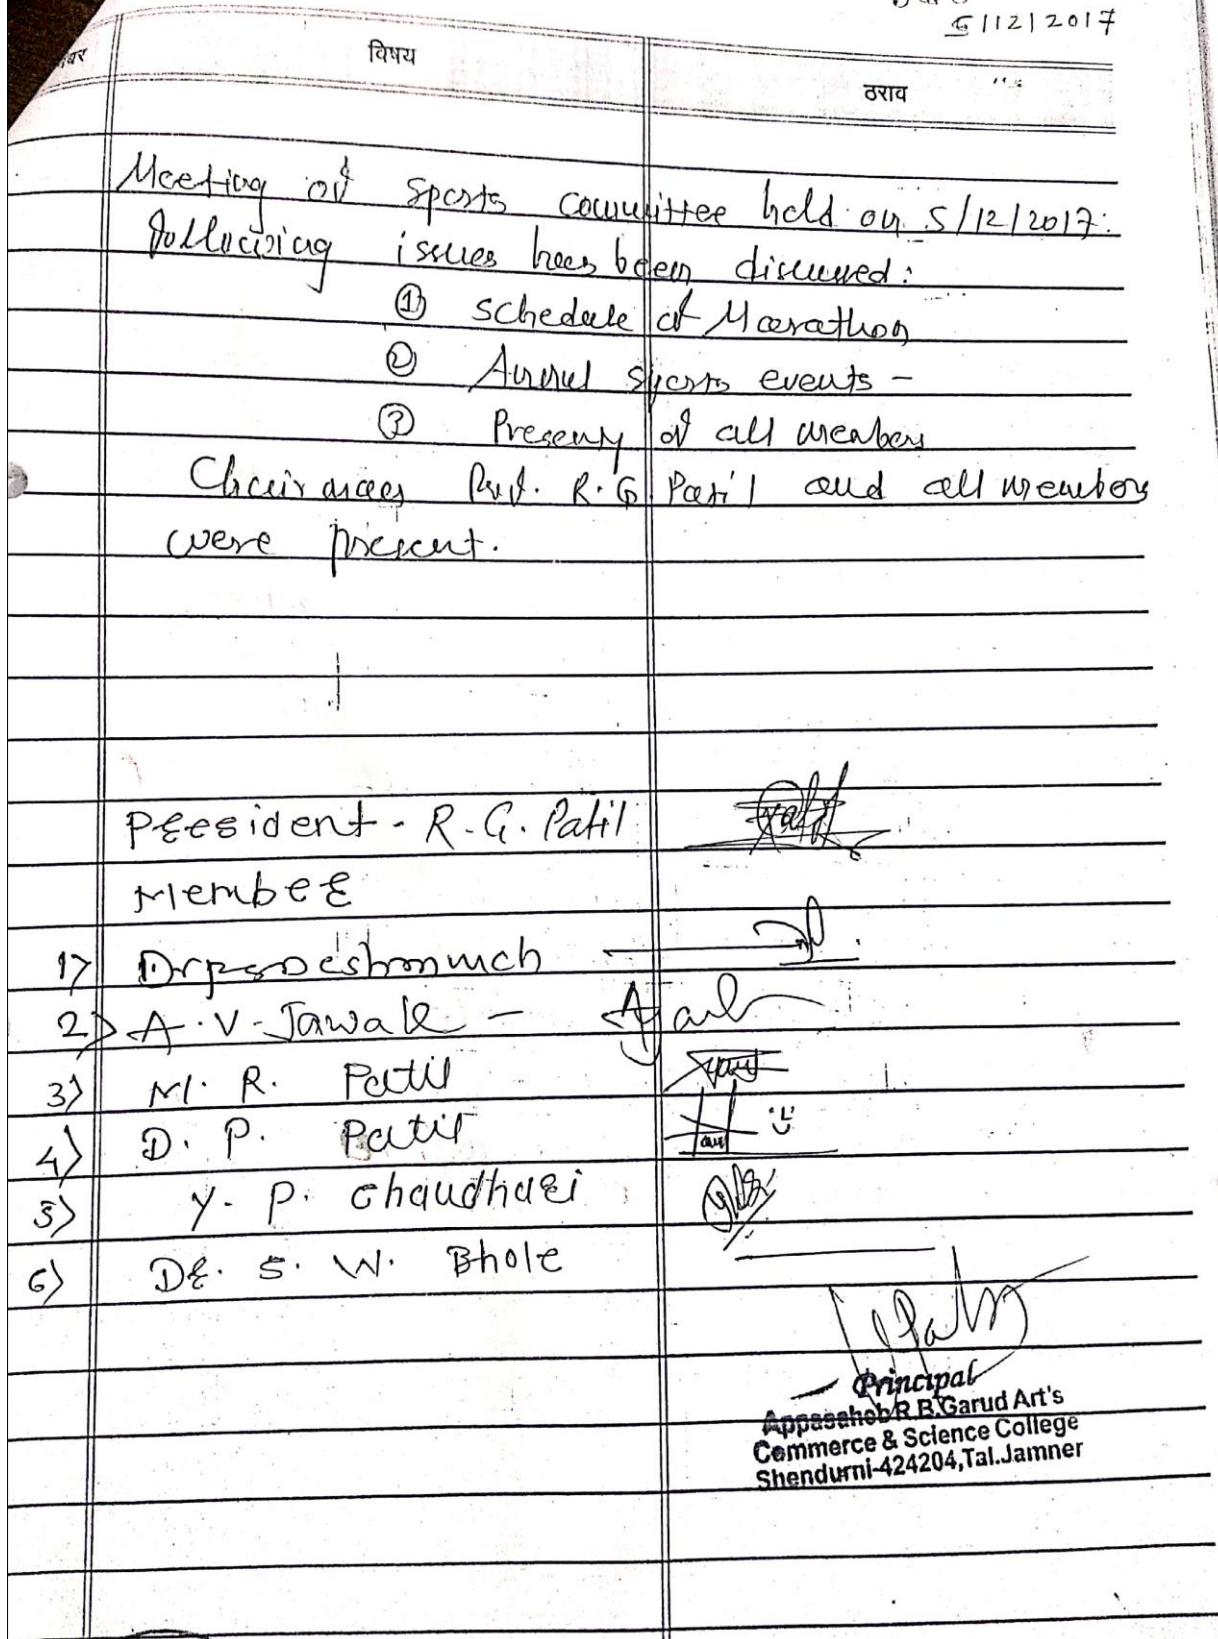 5/12/2017
विषय
ठराव
Meeting of sports committee held on 5/12/2017.
following issues has been discussed:
① schedule of Marathon
② Annual sports events -
③ Presenty of all members
Chairman Prof. R. G. Patil and all members
were present.
President - R. G. Patil
Member
1) Dr Deshmukh
2) A. V. Jawale -
3) M. R. Patil
4) D. P. Patil
5) Y. P. Chaudhari
6) Dr. S. W. Bhole
Principal
Appasaheb R.B.Garud Art's
Commerce & Science College
Shendurni-424204,Tal.Jamner